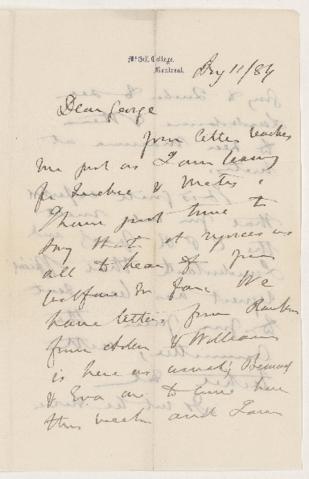 McGill College,
Montreal.
July 11/84
Dear George
Your letter reaches
me just as I am leaving
for Quebec & Metis &
I have just time to
say that it rejoices us
all to hear of your
welfare so far. We
have letters from Rankine
from Aden & William
is here as usual, Bernard
& Eva are to come here
this week and Anna